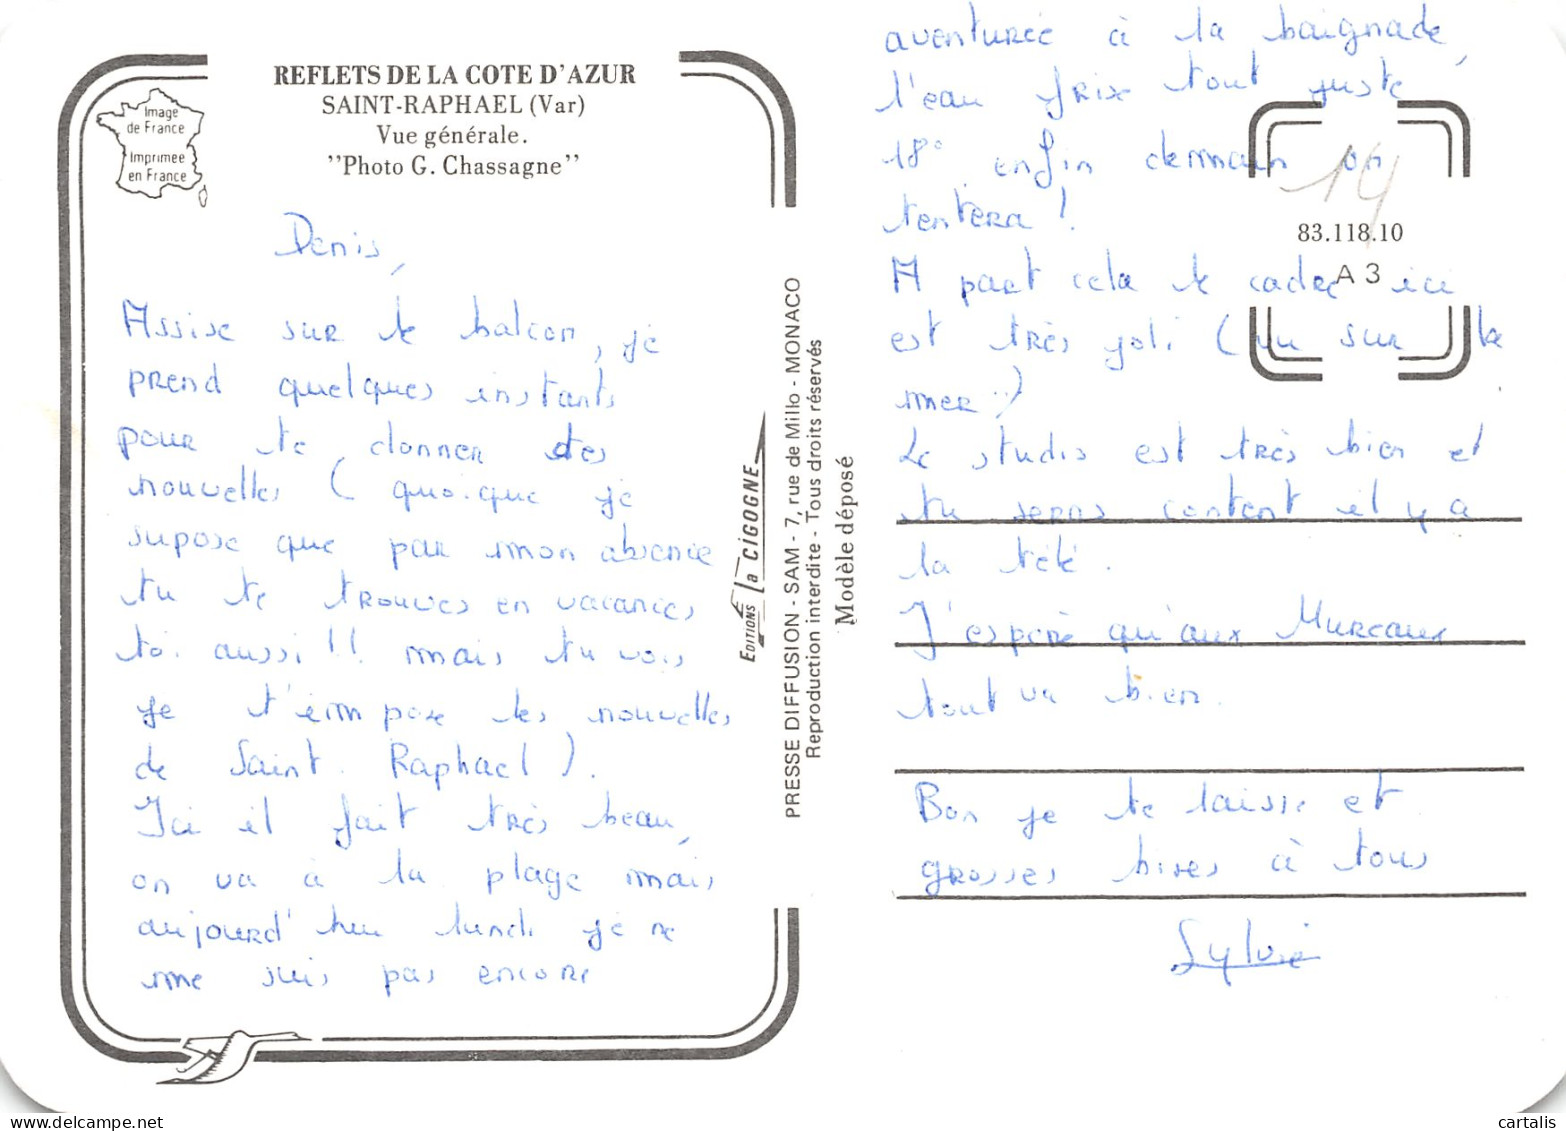 REFLETS DE LA COTE D'AZUR
SAINT-RAPHAEL (Var)
Vue générale.
''Photo G. Chassagne''
Image
de France
Imprimée
en France
Denis,
Assise sur le balcon, je
prend quelques instants
pour te donner des
nouvelles ( quoique je
supose que par mon absence
tu te trouves en vacances
toi aussi !! mais tu vois
je t'impose les nouvelles
de Saint Raphael ).
Ici il fait très beau,
on va à la plage mais
aujourd'hui lundi je ne
me suis pas encore
EDITIONS la CIGOGNE
PRESSE DIFFUSION - SAM - 7, rue de Millo - MONACO
Reproduction interdite - Tous droits réservés
Modèle déposé
aventurée à la baignade,
l'eau frise tout juste
18° enfin demain on
tentera !
A part cela le cadre ici
est très joli ( vu sur la
mer )
Le studio est très bien et
tu seras content il y a
la télé.
J'espère qu'aux Mureaux
tout va bien.
Bon je te laisse et
grosses bises à tous
Sylvie
14
83.118.10
A 3
cartalis